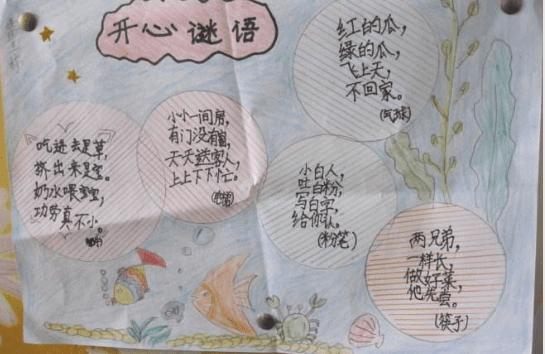 开心谜语
红的瓜,
绿的瓜,
飞上天,
不回家。
(气球)
小小一间房,
有门没有窗,
天天送客人,
上上下下忙。
(电梯)
吃进去是草,
挤出来是宝。
奶水喂宝宝,
功劳真不小。
小白人,
吐白粉,
写白字,
给你认。
(粉笔)
两兄弟,
一样长,
做好菜,
他先尝。
(筷子)